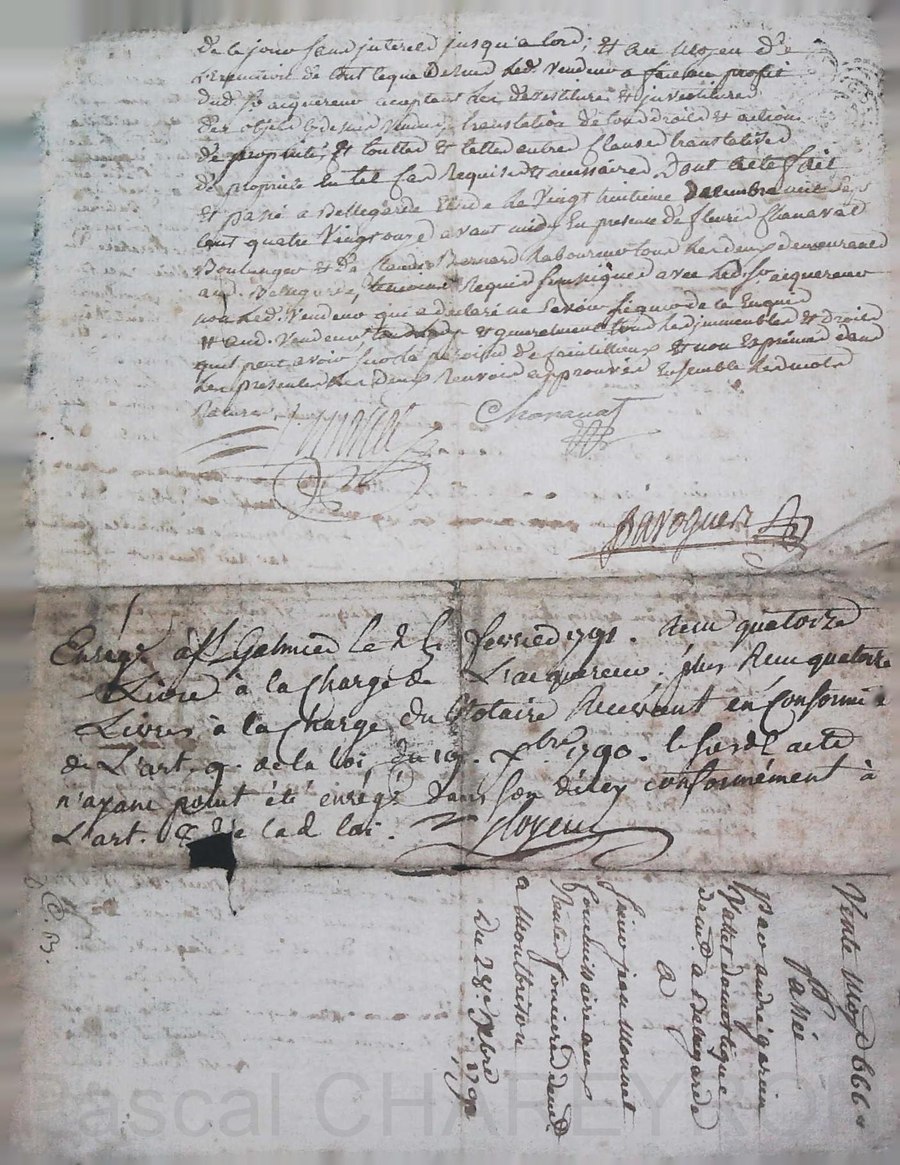 de ce jour sans interet jusqu'alors; et au moyen de
L'execution de tout ceque Dessus led. vendeur a fait au profit
dud. Sr. acquereur acceptant les devestiture et investiture
des objets cydessus vendus, translation de tous droits et actions
de propriété, et touttes et telles autres clauses translatives
de propriété en tel cas Requises et necessaires. Dont acte fait
et passé a Bellegarde Etude Le Vingt huitieme decembre mil sept
cent quatre Vingt avant midy En presence de fleurie Chanavat
Boulanger et de Claude Bernard tous Residens demeurants
aud. Bellegarde, temoins Requis soussignés avec led. Sr. acquereur
non led. Vendeur qui a declaré ne Savoir signer de ce Enquis
et aud. vendeur et generalement tous les immeubles et droits
quil peut avoir sur la paroisse de et non Exprimés dans
les presentes Les deux Renvois approuvés Ensemble les mots
Chanavat
Baroguers
Enregé. à St. Galmier le février 1791. Reçu quatorze
Livres à la Charge de L'acquereur. plus Reçu quatorze
Livres à la Charge du Notaire Recevant en conformité
de L'art. 9. de la loi du 19. Xbre. 1790. le susd. acte
n'ayant point été enrégé. dans son délay conformément à
L'art. de lad. loi.
C. B.
Vente moyt 666
passée
par andré garin
Valet domestique
deud. a Bellegarde
a
Sieur jean monnat
Commissaire aux
Rentes foncieres deud.
a Montbrison
Du 28e. Xbre. 1790
Pascal CHAREYRON